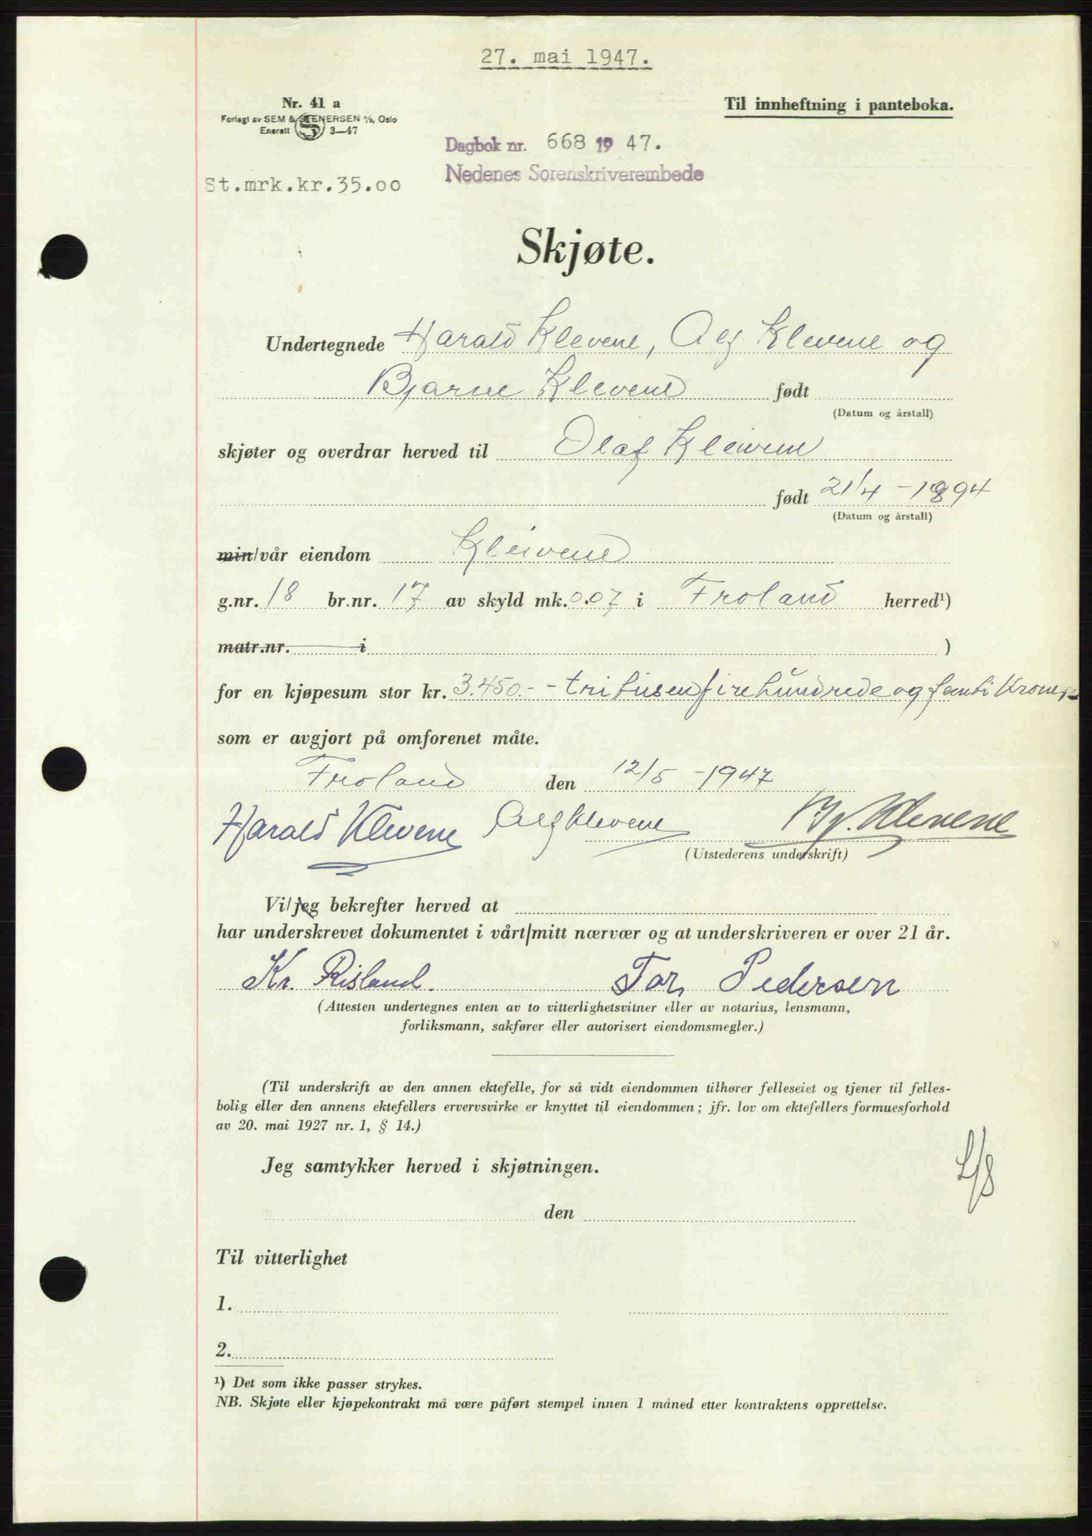 27. mai 1947.
Nr. 41 a
Til innheftning i panteboka.
Forlagt av SEM & STENERSEN A/S, Oslo
Enerett 3—47
Dagbok nr. 668 1947.
St.mrk.kr.35.00
Nedenes Sorenskriverembede
Skjøte.
Undertegnede Harald Klevene, Alf Klevene og
Bjarne Klevene født
(Datum og årstall)
skjøter og overdrar herved til Olaf Kleiven
født 21/4 - 1894
(Datum og årstall)
min/vår eiendom Kleivene
g.nr. 18 br.nr. 17 av skyld mk. 0.07 i Froland herred¹)
matr.nr. i )
for en kjøpesum stor kr. 3.450.- - tritusenfirehundrede og femti Kroner
som er avgjort på omforenet måte.
Froland den 12/5 - 1947
Harald Klevene Alf Klevene Bj. Klevene
(Utstederens underskrift)
Vi/jeg bekrefter herved at
har underskrevet dokumentet i vårt/mitt nærvær og at underskriveren er over 21 år.
Kr. Risland. Tor Pedersen
(Attesten undertegnes enten av to vitterlighetsvitner eller av notarius, lensmann,
forliksmann, sakfører eller autorisert eiendomsmegler.)
(Til underskrift av den annen ektefelle, for så vidt eiendommen tilhører felleseiet og tjener til felles-
bolig eller den annens ektefellers ervervsvirke er knyttet til eiendommen; jfr. lov om ektefellers formuesforhold
av 20. mai 1927 nr. 1, § 14.)
Jeg samtykker herved i skjøtningen.
den
Til vitterlighet
1.
2.
¹) Det som ikke passer strykes.
NB. Skjøte eller kjøpekontrakt må være påført stempel innen 1 måned etter kontraktens opprettelse.